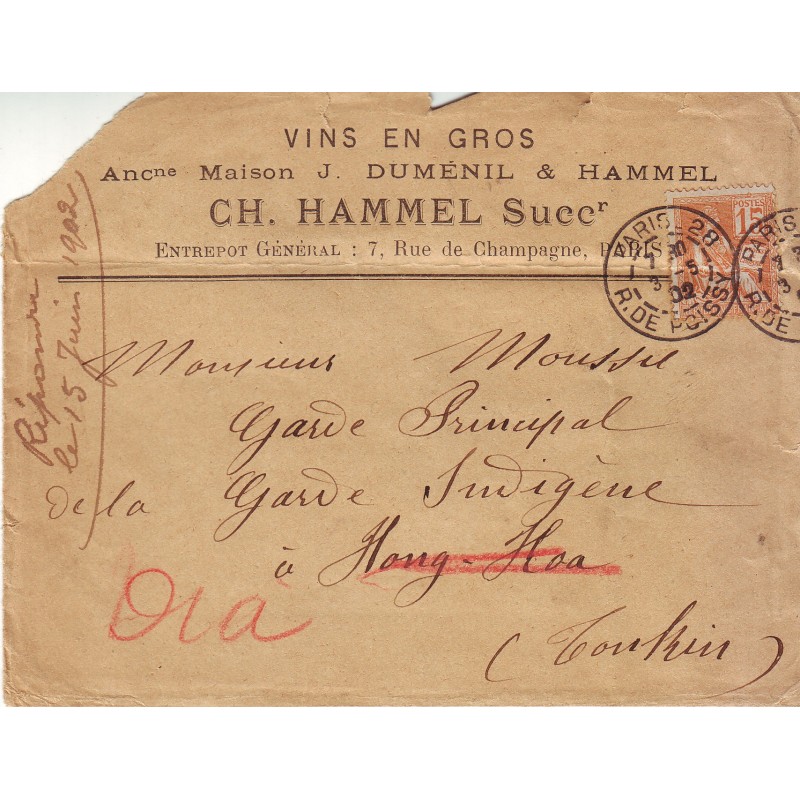 VINS EN GROS
Ancne Maison J. DUMÉNIL & HAMMEL
CH. HAMMEL Succr
ENTREPOT GÉNÉRAL : 7, Rue de Champagne, PARIS
POSTES
15
PARIS 28
1 30
3 - 5
02
R. DE POISSY
PARIS
3
R. DE
Répondre
le 15 Juin 1902
Monsieur Moussié
Garde Principal
de la Garde Indigène
à Hong-Hoa
Dia
(Tonkin)